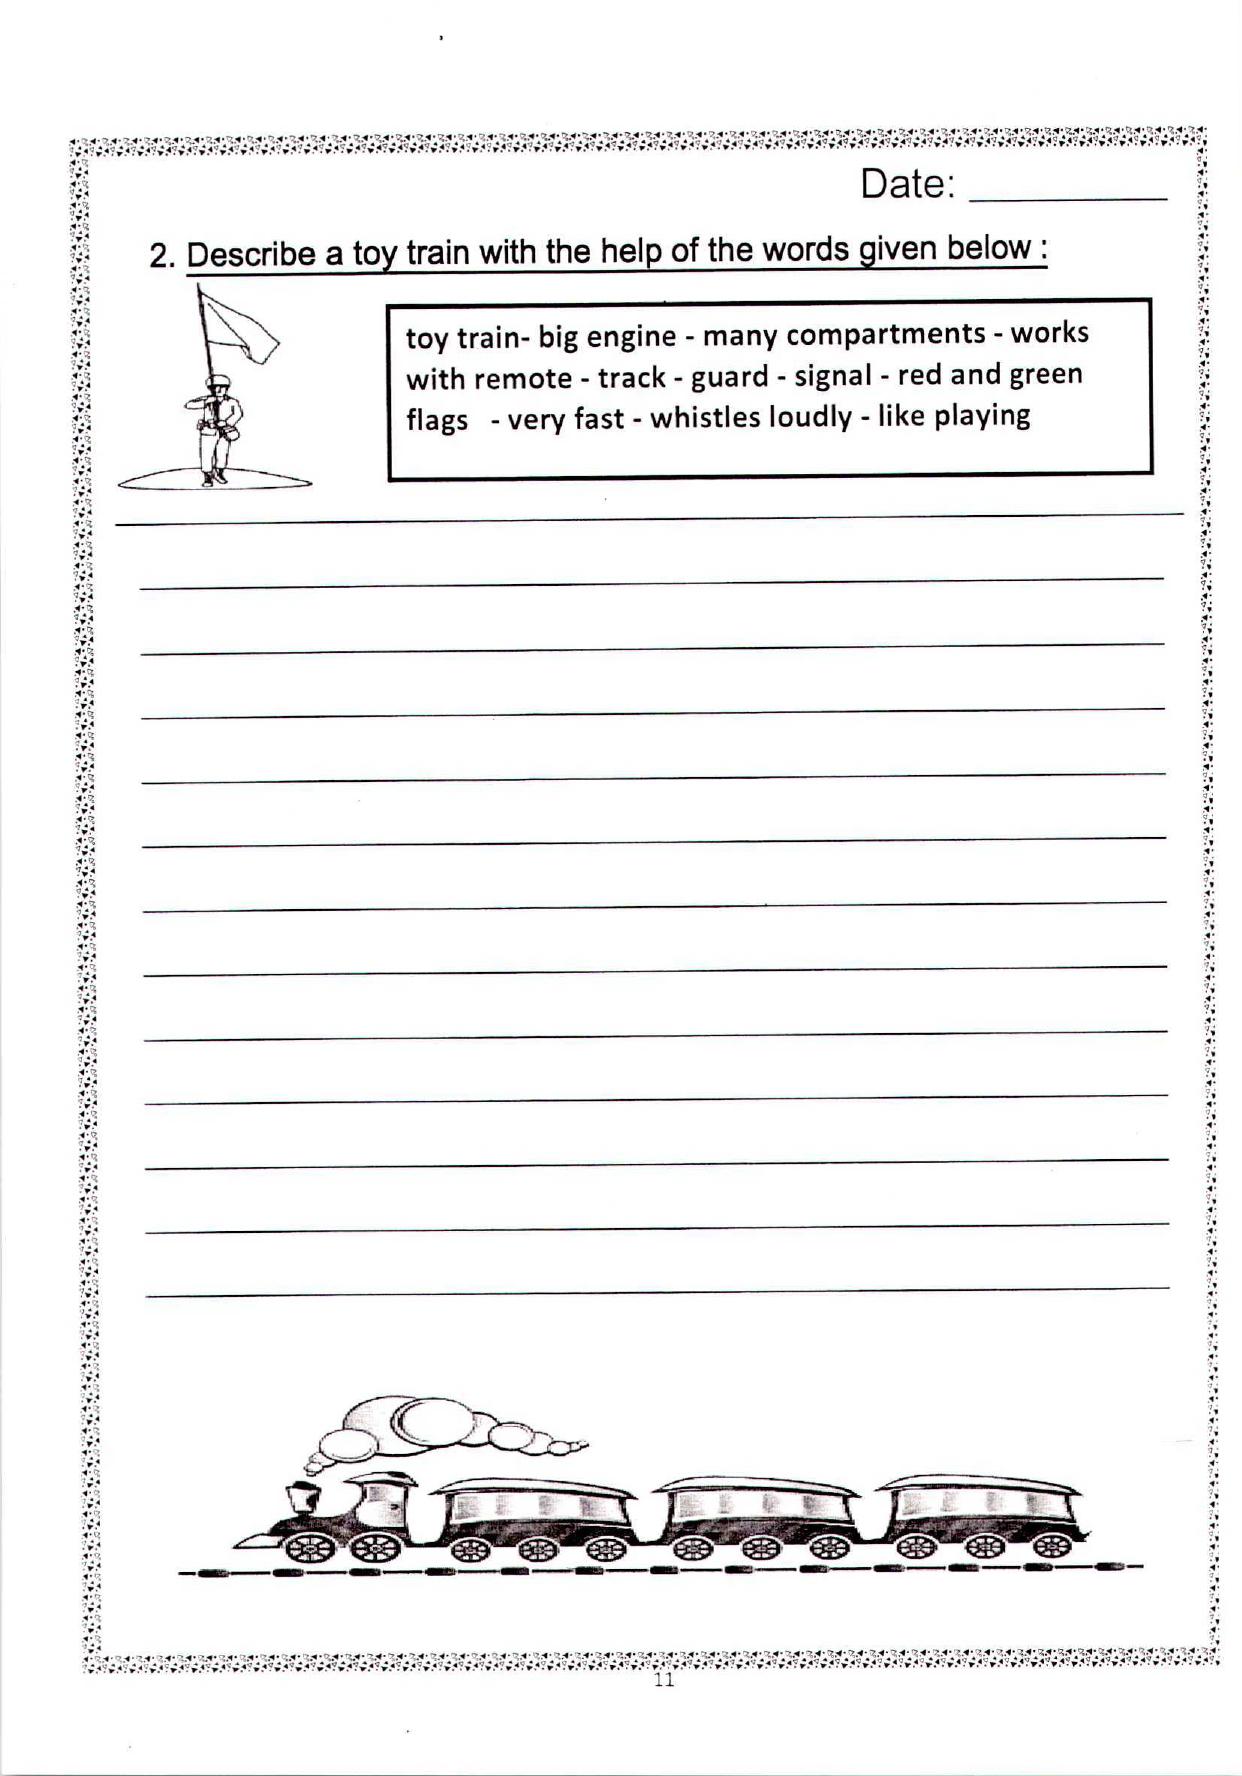 Date: __________
2. Describe a toy train with the help of the words given below :
toy train- big engine - many compartments - works
with remote - track - guard - signal - red and green
flags - very fast - whistles loudly - like playing
11